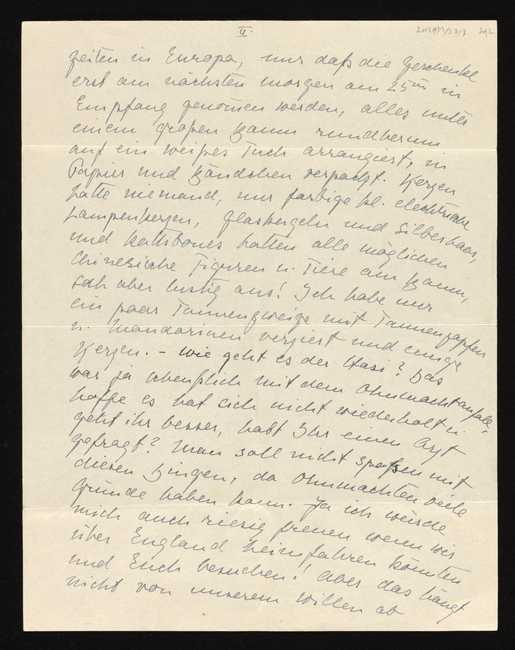 II.
zeiten in Europa, nur daß die Geschenke
erst am nächsten Morgen am 25ten in
Empfang genommen werden, alles unter
einem großen Baum rundherum
auf ein weißes Tuch arrangiert, in
Papier und Bändchen verpackt. Kerzen
hatte niemand, nur farbige kl. elektrische
Lampenkerzen, Glaskugeln und Silberhaar,
und hatten alle möglichen
chinesische Figuren u. Tiere am Baum,
sah aber lustig aus! Ich habe nur
ein paar Tannenzweige mit Tannenzapfen
u. Mandarinen verziert und einige
Kerzen. – Wie geht es der Hasi? Das
war ja scheußlich mit dem Ohnmachtanfall,
hoffe es hat sich nicht wiederholt u.
geht ihr besser, habt Ihr einen Arzt
gefragt? Man soll nicht spaßen mit
diesen Dingen, da Ohnmachten viele
Gründe haben kann. Ja ich würde
mich auch riesig freuen wenn wir
über England heimfahren könnten
und Euch besuchen! Aber das hängt
nicht von unserem Willen ab